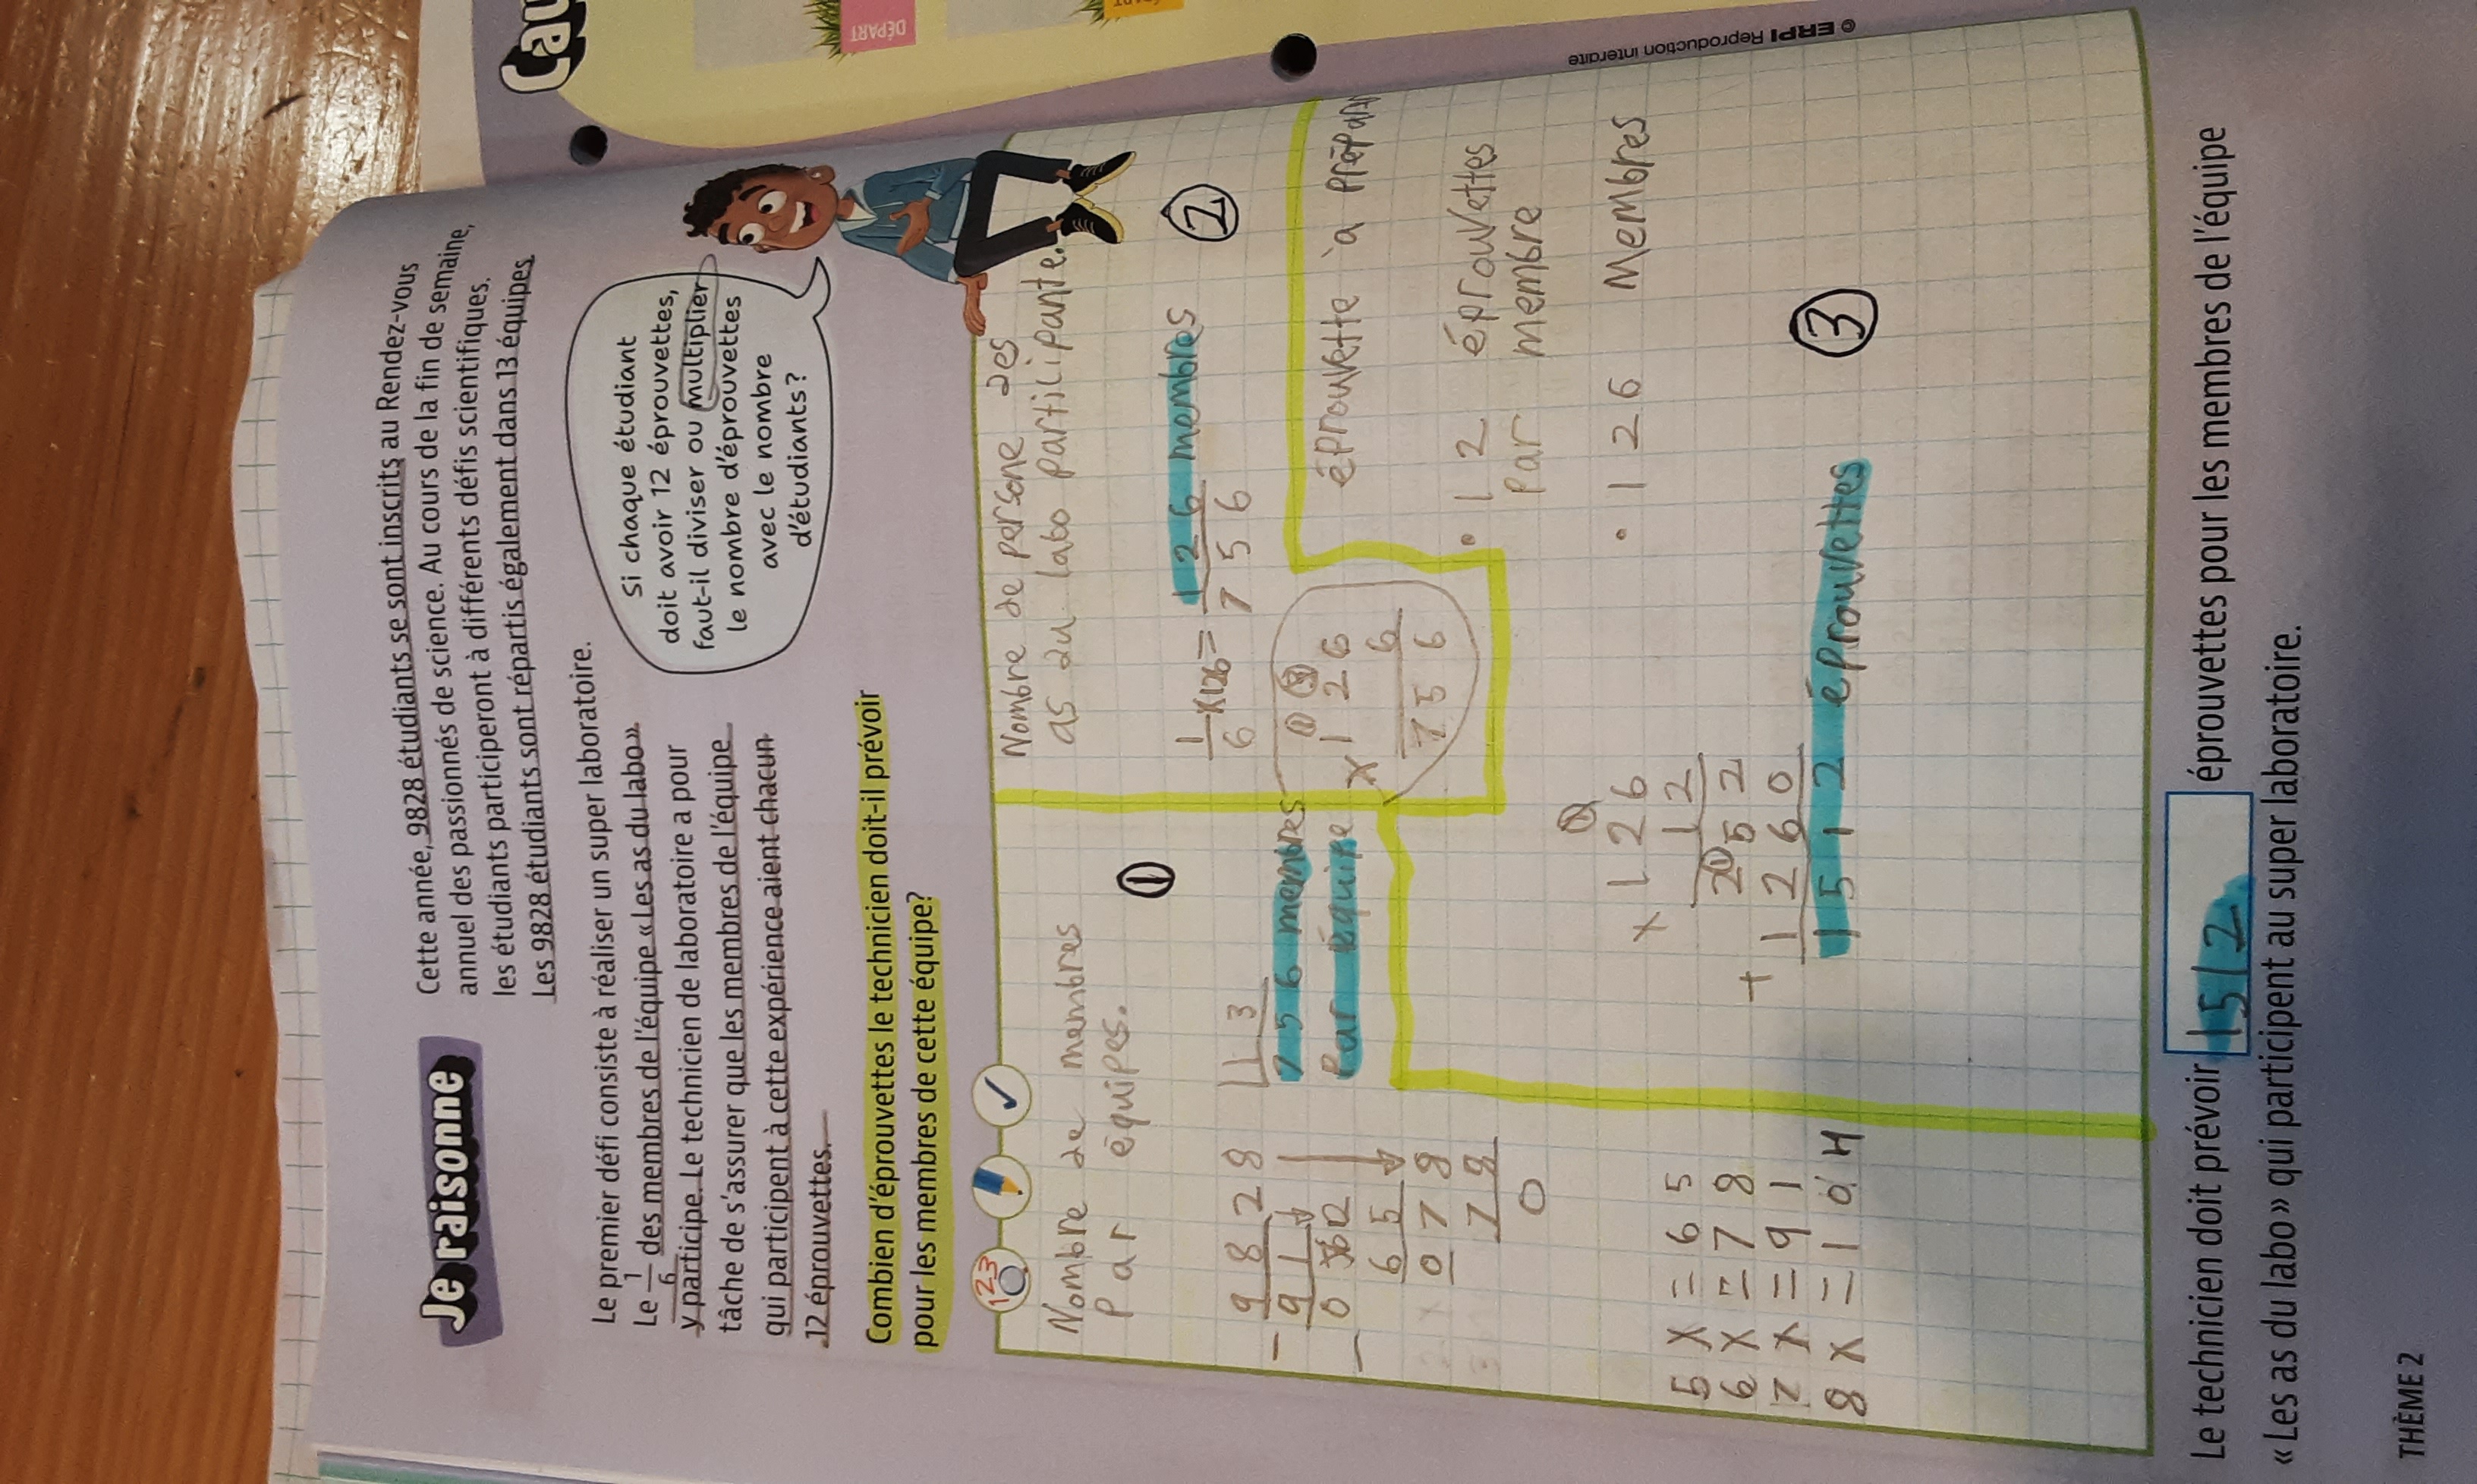 Je raisonne
Cette année, 9828 étudiants se sont inscrits au Rendez-vous
annuel des passionnés de science. Au cours de la fin de semaine,
les étudiants participeront à différents défis scientifiques.
Les 9828 étudiants sont répartis également dans 13 équipes.
Le premier défi consiste à réaliser un super laboratoire.
Le 1/6 des membres de l'équipe « Les as du labo »
y participe. Le technicien de laboratoire a pour
tâche de s'assurer que les membres de l'équipe
qui participent à cette expérience aient chacun
12 éprouvettes.
Si chaque étudiant
doit avoir 12 éprouvettes,
faut-il diviser ou multiplier
le nombre d'éprouvettes
avec le nombre
d'étudiants?
Combien d'éprouvettes le technicien doit-il prévoir
pour les membres de cette équipe?
123
Nombre de membres
Par équipes.
1
9828 13
- 91 756 membres
Par équipe
062
- 65
078
78
0
5 x = 65
6 x = 78
7 x = 91
8 x = 104
Nombre de persone des
as du labo partilipante.
2
1/6 x126 = 126 membres
756
1 3
126
x 6
756
éprouvette à prépar
• 12 éprouvettes
Par membre
• 126 Membres
1
126
x 12
252
+ 1260
1512 éprouvettes
3
Le technicien doit prévoir 1512 éprouvettes pour les membres de l'équipe
« Les as du labo » qui participent au super laboratoire.
THÈME 2
© ERPI Reproduction interdite
Cau
DÉPART